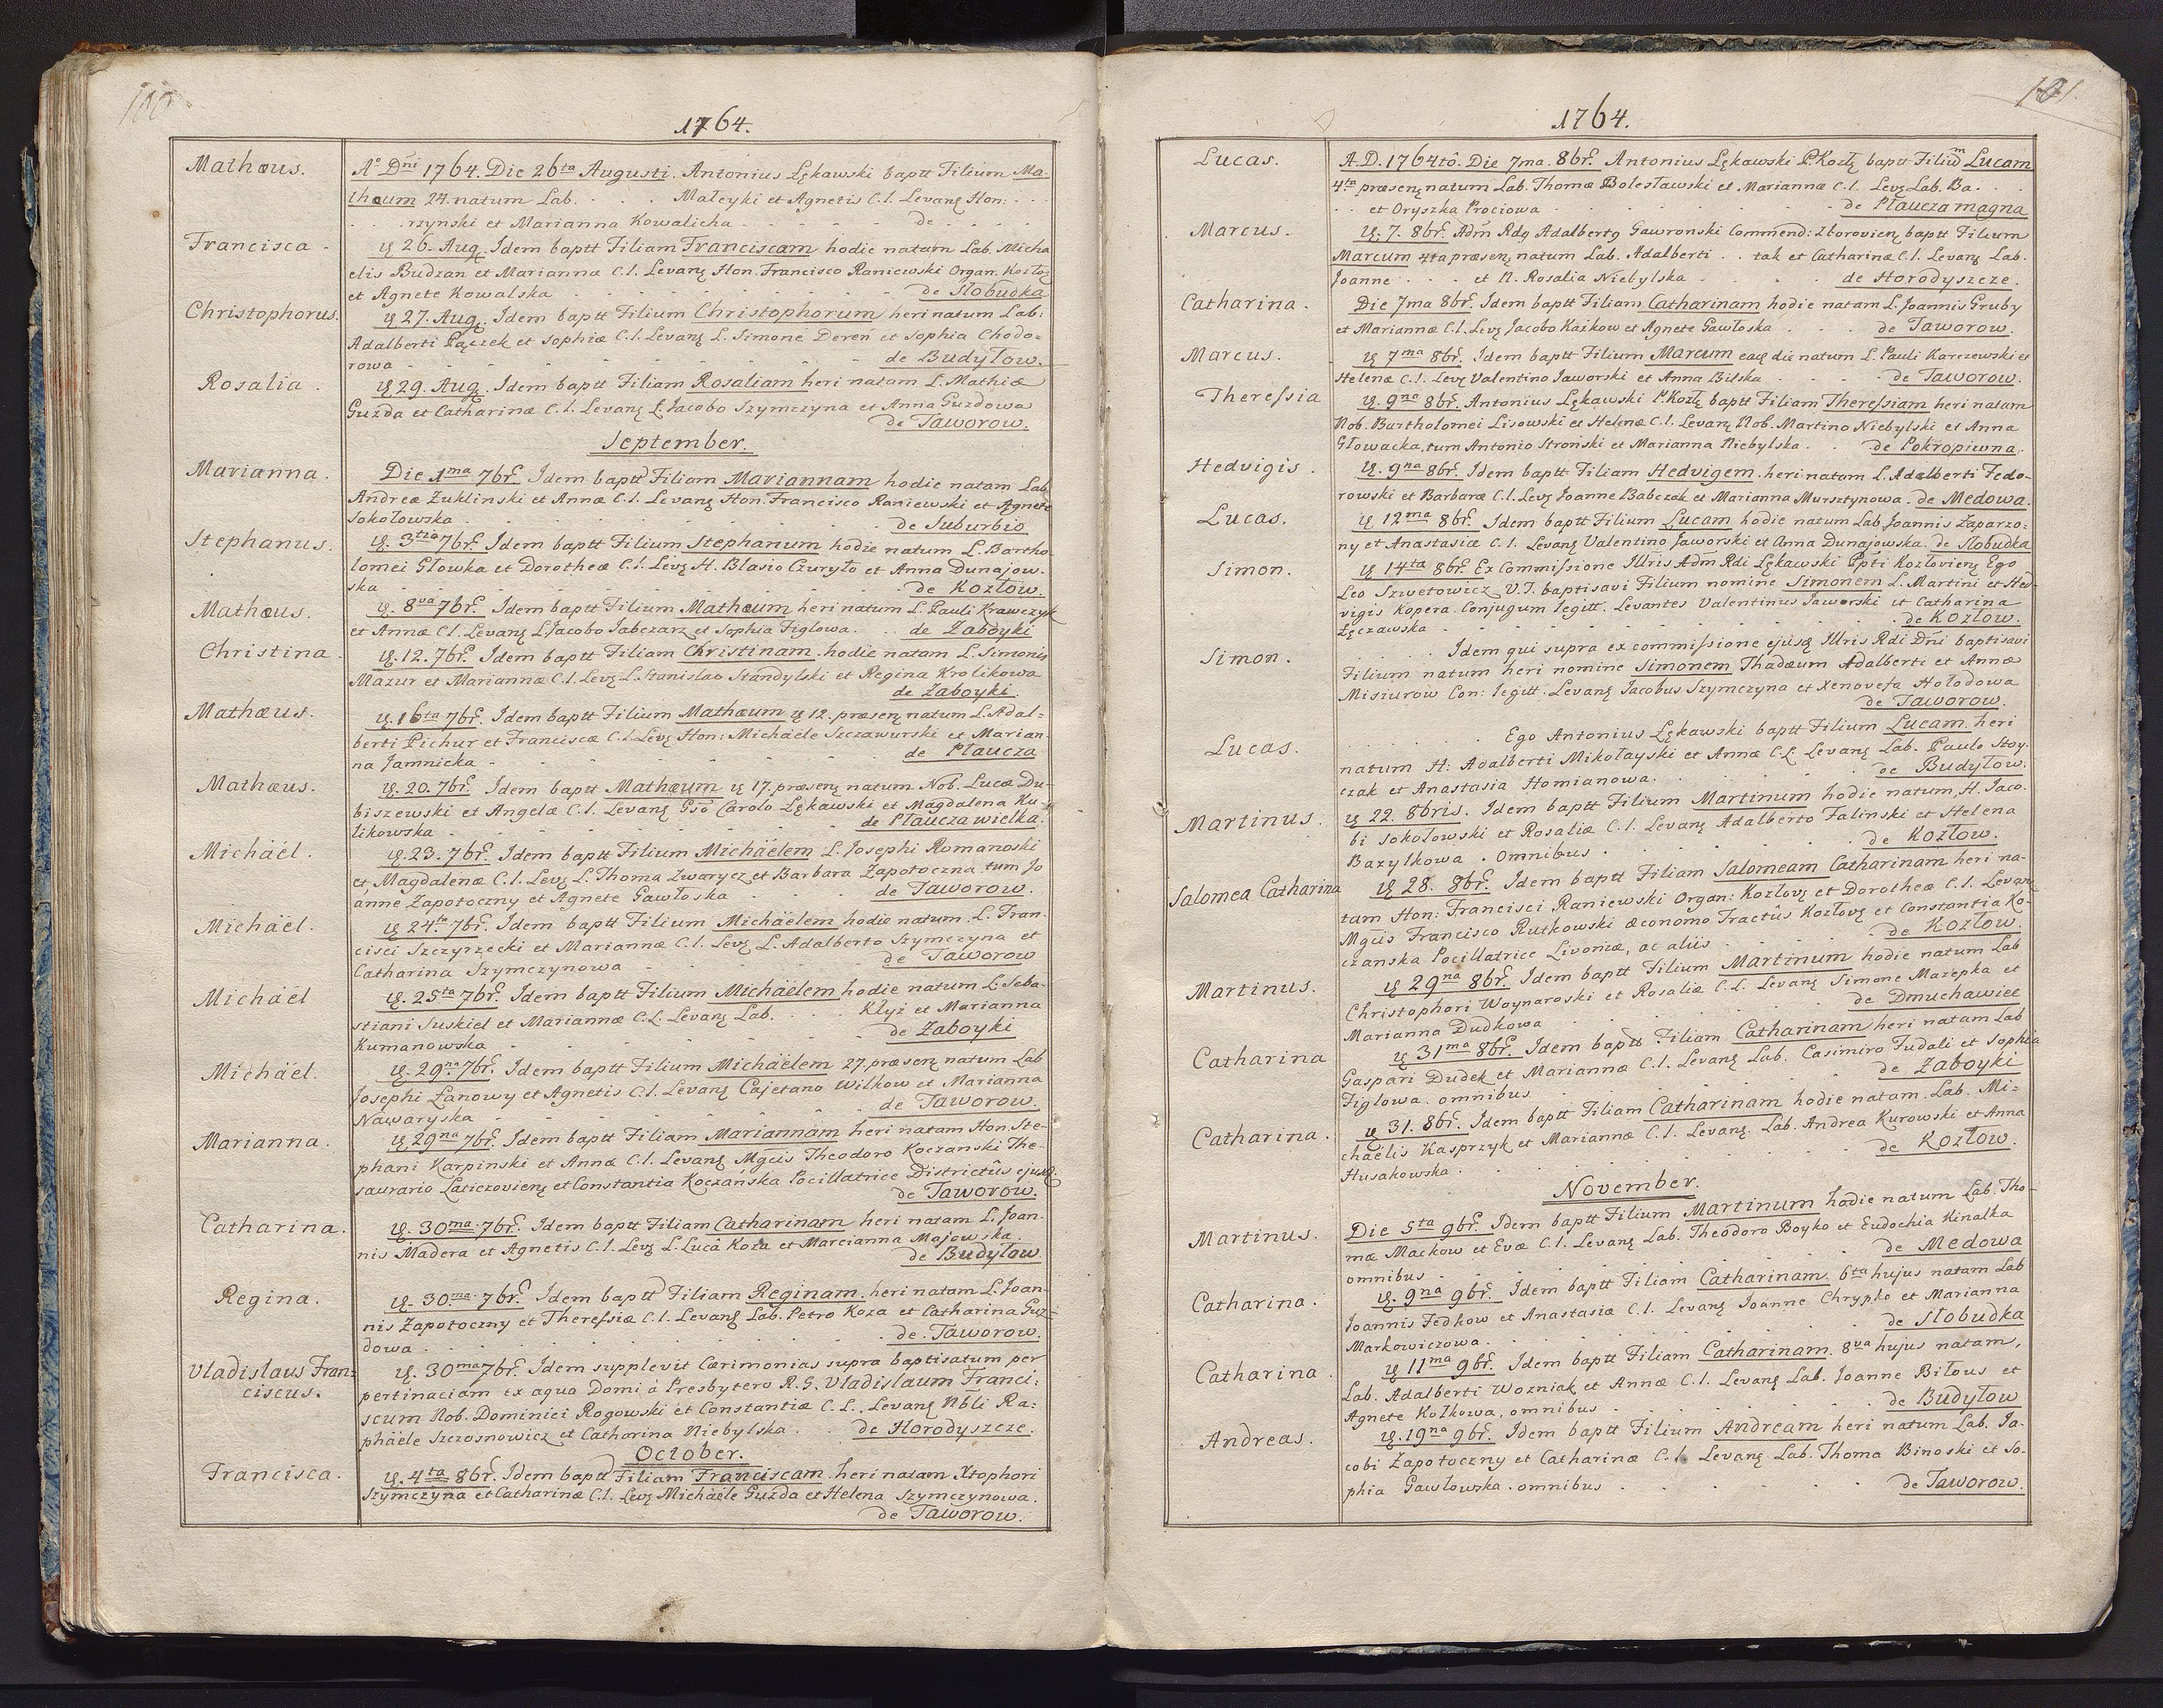 100
1764.
Mathæus.
A° Dni 1764. Die 26ta Augusti. Antonius Łękawski baptt Filium Ma-
thæum 24. natum Lab. . . . Mateyki et Agnetis C.l. Levanę Hon: . . .
. . rzynski et Marianna Kowalicha - - - - - de . . . .
Francisca.
ię 26. Aug. Idem baptt Filiam Franciscam hodie natam Lab. Micha
elis Budzan et Mariannæ C.l. Levanę Hon. Francisco Raniewski Organ. Kozłoę
et Agnete Kowalska - - - - - - de Słobudka
Christophorus.
ię 27. Aug. Idem baptt Filium Christophorum heri natum Lab:
Adalberti Pączek et Sophiæ C.l. Levanę L. Simone Dereń et Sophia Chodo=
rowa - - - - - - de Budyłow.
Rosalia.
ię 29. Aug. Idem baptt Filiam Rosaliam heri natam L. Mathiæ
Guzda et Catharinæ C.l. Levanę L. Jacobo Szymczyna et Anna Guzdowa
de Taworow.
September.
Marianna.
Die 1ma 7br. Idem baptt Filiam Mariannam hodie natam Lab
Andreæ Żuklinski et Annæ C.l. Levanę Hon. Francisco Raniewski et Agnete
Sokołowska . . . . . . de Suburbio
Stephanus.
ię. 3tia 7br. Idem baptt Filium Stephanum hodie natum L. Bartho
lomei Głowka et Dorotheæ C.l. Levę H. Blasio Czuryło et Anna Dunajow-
ska - - - - - - de Kozłow.
Mathæus.
ię. 8va 7br. Idem baptt Filium Mathæum heri natum L. Pauli Krawczyk
et Annæ C.l. Levanę L Jacobo Jabczarz et Sophia Figlowa. . . de Zaboyki
Christina
ię. 12. 7br. Idem baptt Filiam Christinam hodie natam L. Simonis
Mazur et Mariannæ C.l. Levę L. Stanislao Standylski et Regina Krolikowa
de Zaboyki.
Mathæus.
ię. 16ta 7br. Idem baptt Filium Mathæum ię 12. præsenę natum L. Adal=
berti Pichur et Franciscæ C.l. Levę Hon: Michaële Szczawurski et Marian-
na Jamnicka - - - - - - de Płaucza
Mathæus.
ię. 20. 7br. Idem baptt Mathæum ię 17. præsenę natum Nob. Lucæ Du-
biszewski et Angelæ C.l. Levanę Gso Carolo Łękawski et Magdalena Ku-
likowska - - - - - - de Płaucza wielka.
Michäél.
ię. 23. 7br. Idem baptt Filium Michäelem L. Josephi Romanoski
et Magdalenæ C.l. Levę L. Thoma Zwarycz et Barbara Zapotoczna tum Jo
anne Zapotoczny et Agnete Gawłoska - - - - de Taworow.
Michäél.
ię 24ta 7br. Idem baptt Filium Michäelem hodie natum. L. Fran-
cisci Szczyrzecki et Mariannæ C.l. Levę L. Adalberto Szymczyna et
Catharina Szymczynowa - - - - - de Taworow
Michäél
ię. 25ta 7br. Idem baptt Filium Michäelem hodie natum L. Seba-
stiani Suskiel et Mariannæ C.l. Levanę Lab. . . . Kłyż et Marianna
Kumanowska - - - - - - de Zaboyki
Michäél.
ię. 29na 7br. Idem baptt Filium Michäelem 27. præsenę natum Lab
Josephi Łanowy et Agnetis C.l. Levanę Cajetano Wilkow et Marianna
Nawaryska - - - - - - de Taworow.
Marianna.
ię 29na 7br. Idem baptt Filiam Mariannam heri natam Hon. Ste-
phani Karpinski et Annæ C.l. Levanę Mgcis Theodoro Koczanski The-
saurario Laticzovienę et Constantia Koczańska Pocillatrice Districtûs ejusdę
de Taworow.
Catharina.
ię. 30ma 7br. Idem baptt Filiam Catharinam heri natam L. Joan-
nis Madera et Agnetis C.l. Levę L. Lucâ Koza et Marcianna Majowska.
de Budyłow
Regina.
ię. 30ma 7br. Idem baptt Filiam Reginam. heri natam L. Joan-
nis Zapotoczny et Theressiæ C.l. Levanę Lab. Petro Koza et Catharina Guz-
dowa . . . . . . de Taworow.
Vladislaus Fran=
ciscus.
ię. 30ma 7br. Idem supplevit Cærimonias supra baptisatum per
pertinaciam ex aqua Domi à Presbytero R. G. Vladislaum Franci=
scum Nob. Dominici Rogowski et Constantiæ C.L. Levanę Nbli Ra=
phäele Szczosnowicz et Catharina Niebylska. de Horodyszcze.
October.
Francisca.
ię. 4ta 8br. Idem baptt Filiam Franciscam heri natam Xtophori
Szymczyna et Catharinæ C.l. Levę Michäele Guzda et Helena Szymczynowa.
de Taworow.
101
1764.
Lucas.
A.D. 1764tô. Die 7ma. 8br. Antonius Łękawski P. Kozłę baptt Filium Lucam
4ta præsenę natum Lab. Thomæ Bolesławski et Mariannæ C.l. Levę Lab. Ba. . .
. . et Oryszka Prociowa . . . . . de Płaucza magna
Marcus.
ię. 7. 8br. Adm Rdg Adalbertg Gawronski Commend: Zborovienę baptt Filium
Marcum 4ta præsenę natum Lab. Adalberti . . tak et Catharinæ C.l. Levanę Lab.
Joanne . . . et N. Rosalia Niebylska - - - de Horodyszcze.
Catharina.
Die 7ma 8br. Idem baptt Filiam Catharinam hodie natam L. Joannis Gruby
et Mariannæ C.l. Levę Jacobo Kaźkow et Agnete Gawłoska . . . de Taworow.
Marcus.
ię 7ma 8br. Idem baptt Filium Marcum eaę die natum L. Pauli Karczewski et
Helenæ C.l. Levę Valentino Jaworski et Anna Bilska . . . de Taworow.
Theressia
ię. 9na 8br. Antonius Łękawski P. Kozłę baptt Filiam Theressiam heri natam
Nob. Bartholomei Lisowski et Helenæ C.l. Levanę Nob. Martino Niebylski et Anna
Głowacka, tum Antonio Stroński et Marianna Niebylska. . de Pokropiwna.
Hedvigis.
ię. 9na 8br. Idem baptt Filiam Hedvigem. heri natam L. Adalberti Fedo-
rowski et Barbaræ C.l. Levę Joanne Babczak et Marianna Mursztynowa. de Medowa.
Lucas.
ię 12ma 8br. Idem baptt Filium Lucam hodie natum Lab Joannis Zaparzo=
ny et Anastasiæ C.l. Levanę Valentino Jaworski et Anna Dunajowska. de Słobudka
Simon.
ię 14ta 8br. Ex Commissione Illris Adm Rdi Łękawski Ppti Kozłovienę Ego
Leo Szwetowicz V.J. baptisavi Filium nomine Simonem L. Martini et Hed-
vigis Kopera Conjugum legitt. Levantes Valentinus Jaworski et Catharina
Łęczawska - - - - - - de Kozłow.
Simon.
. . . . Idem qui supra ex commissione ejusq Illris Rdi Dni baptisavi
Filium natum heri nomine Simonem Thadæum Adalberti et Annæ
Misiurow Con: legitt. Levanę Jacobus Szymczyna et Xenovefa Hołodowa
de Taworow.
Lucas.
. . . . Ego Antonius Łękawski baptt Filium Lucam heri
natum H: Adalberti Mikołayski et Annæ C.L. Levanę Lab. Paulo Stoy-
czak et Anastasia Homianowa. . . . . de Budyłow.
Martinus.
ię 22. 8bris. Idem baptt Filium Martinum hodie natum, H. Jaco-
bi Sokołowski et Rosaliæ C.l. Levanę Adalberto Falinski et Helena
Bazylkowa. Omnibus . . . . . de Kozłow.
Salomea Catharina
ię 28. 8br. Idem baptt Filiam Salomeam Catharinam heri na-
tam Hon: Francisci Raniewski Organ: Kozlovę et Dorotheæ C.l. Levanę
Mgcis Francisco Rutkowski Œconomo Tractûs Kozłovę et Constantia Ko-
czanska Pocillatrice Livoniæ, ac aliis . . . . de Kozłow.
Martinus.
ię 29na 8br. Idem baptt Filium Martinum hodie natum Lab
Christophori Woynaroski et Rosaliæ C.L. Levanę Simone Mazepka et
Marianna Dudkowa . . . . . de Dmuchawiec
Catharina
ię 31ma 8br. Idem baptt Filiam Catharinam heri natam Lab
Gaspari Dudek et Mariannæ C.l. Levanę Lab. Casimiro Fudali et Sophia
Figlowa. omnibus . . . . . de Zaboyki
Catharina.
ię 31. 8br. Idem baptt Filiam Catharinam hodie natam. Lab. Mi=
chaëlis Kasprzyk et Mariannæ C.l. Levanę. Lab. Andrea Kurowski et Anna
Husakowska. . . . . . de Kozłow.
November.
Martinus.
Die 5ta 9br. Idem baptt Filium Martinum hodie natum Lab. Tho-
mæ Mackow et Evæ C.l. Levanę Lab. Theodoro Boyko et Eudochia Kinalka
omnibus . . . . . . de Medowa
Catharina.
ię. 9na 9br. Idem baptt Filiam Catharinam. 6ta hujus natam Lab
Joannis Fedkow et Anastasiæ C.l. Levanę Joanne Chrypko et Marianna
Markowiczowa. . . . . . de Słobudka
Catharina.
ię 11ma 9br. Idem baptt Filiam Catharinam. 8va hujus natam,
Lab. Adalberti Wozniak et Annæ C.l. Levanę Lab. Joanne Biłous et
Agnete Kolkowa, omnibus . . . . . de Budyłow
Andreas.
ię. 19na 9br. Idem baptt Filium Andream heri natum Lab. Ja-
cobi Zapotoczny et Catharinæ C.l. Levanę. Lab. Thoma Binoski et So-
phia Gawłowska. omnibus . . . . . de Taworow.